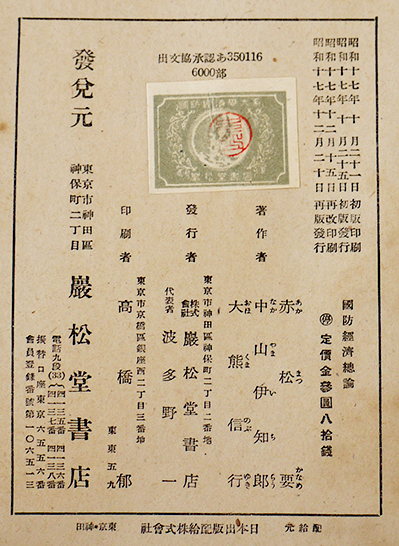 出文協承認あ350116
6000部
昭和十七年十月二十一日初版印刷
昭和十七年十月二十五日初版發行
昭和十七年十二月十五日再版印刷
昭和十七年十二月二十日再版發行
國防經濟總論
停 定價金參圓八拾錢
著作者
赤松要
あか まつ かなめ
中山伊知郎
なか やま い ち らう
大熊信行
おほ くま のぶ ゆき
東京市神田區神保町二丁目二番地
發行者
株式會社 巖松堂書店
代表者 波多野一
東京市京橋區銀座西二丁目三番地
印刷者 高橋郁
東東五九
發兌元
東京市神田區
神保町二丁目
巖松堂書店
振替口座東京六五五六番
會員登錄番號第一〇六五一三
配給元 日本出版配給株式會社 東京・神田